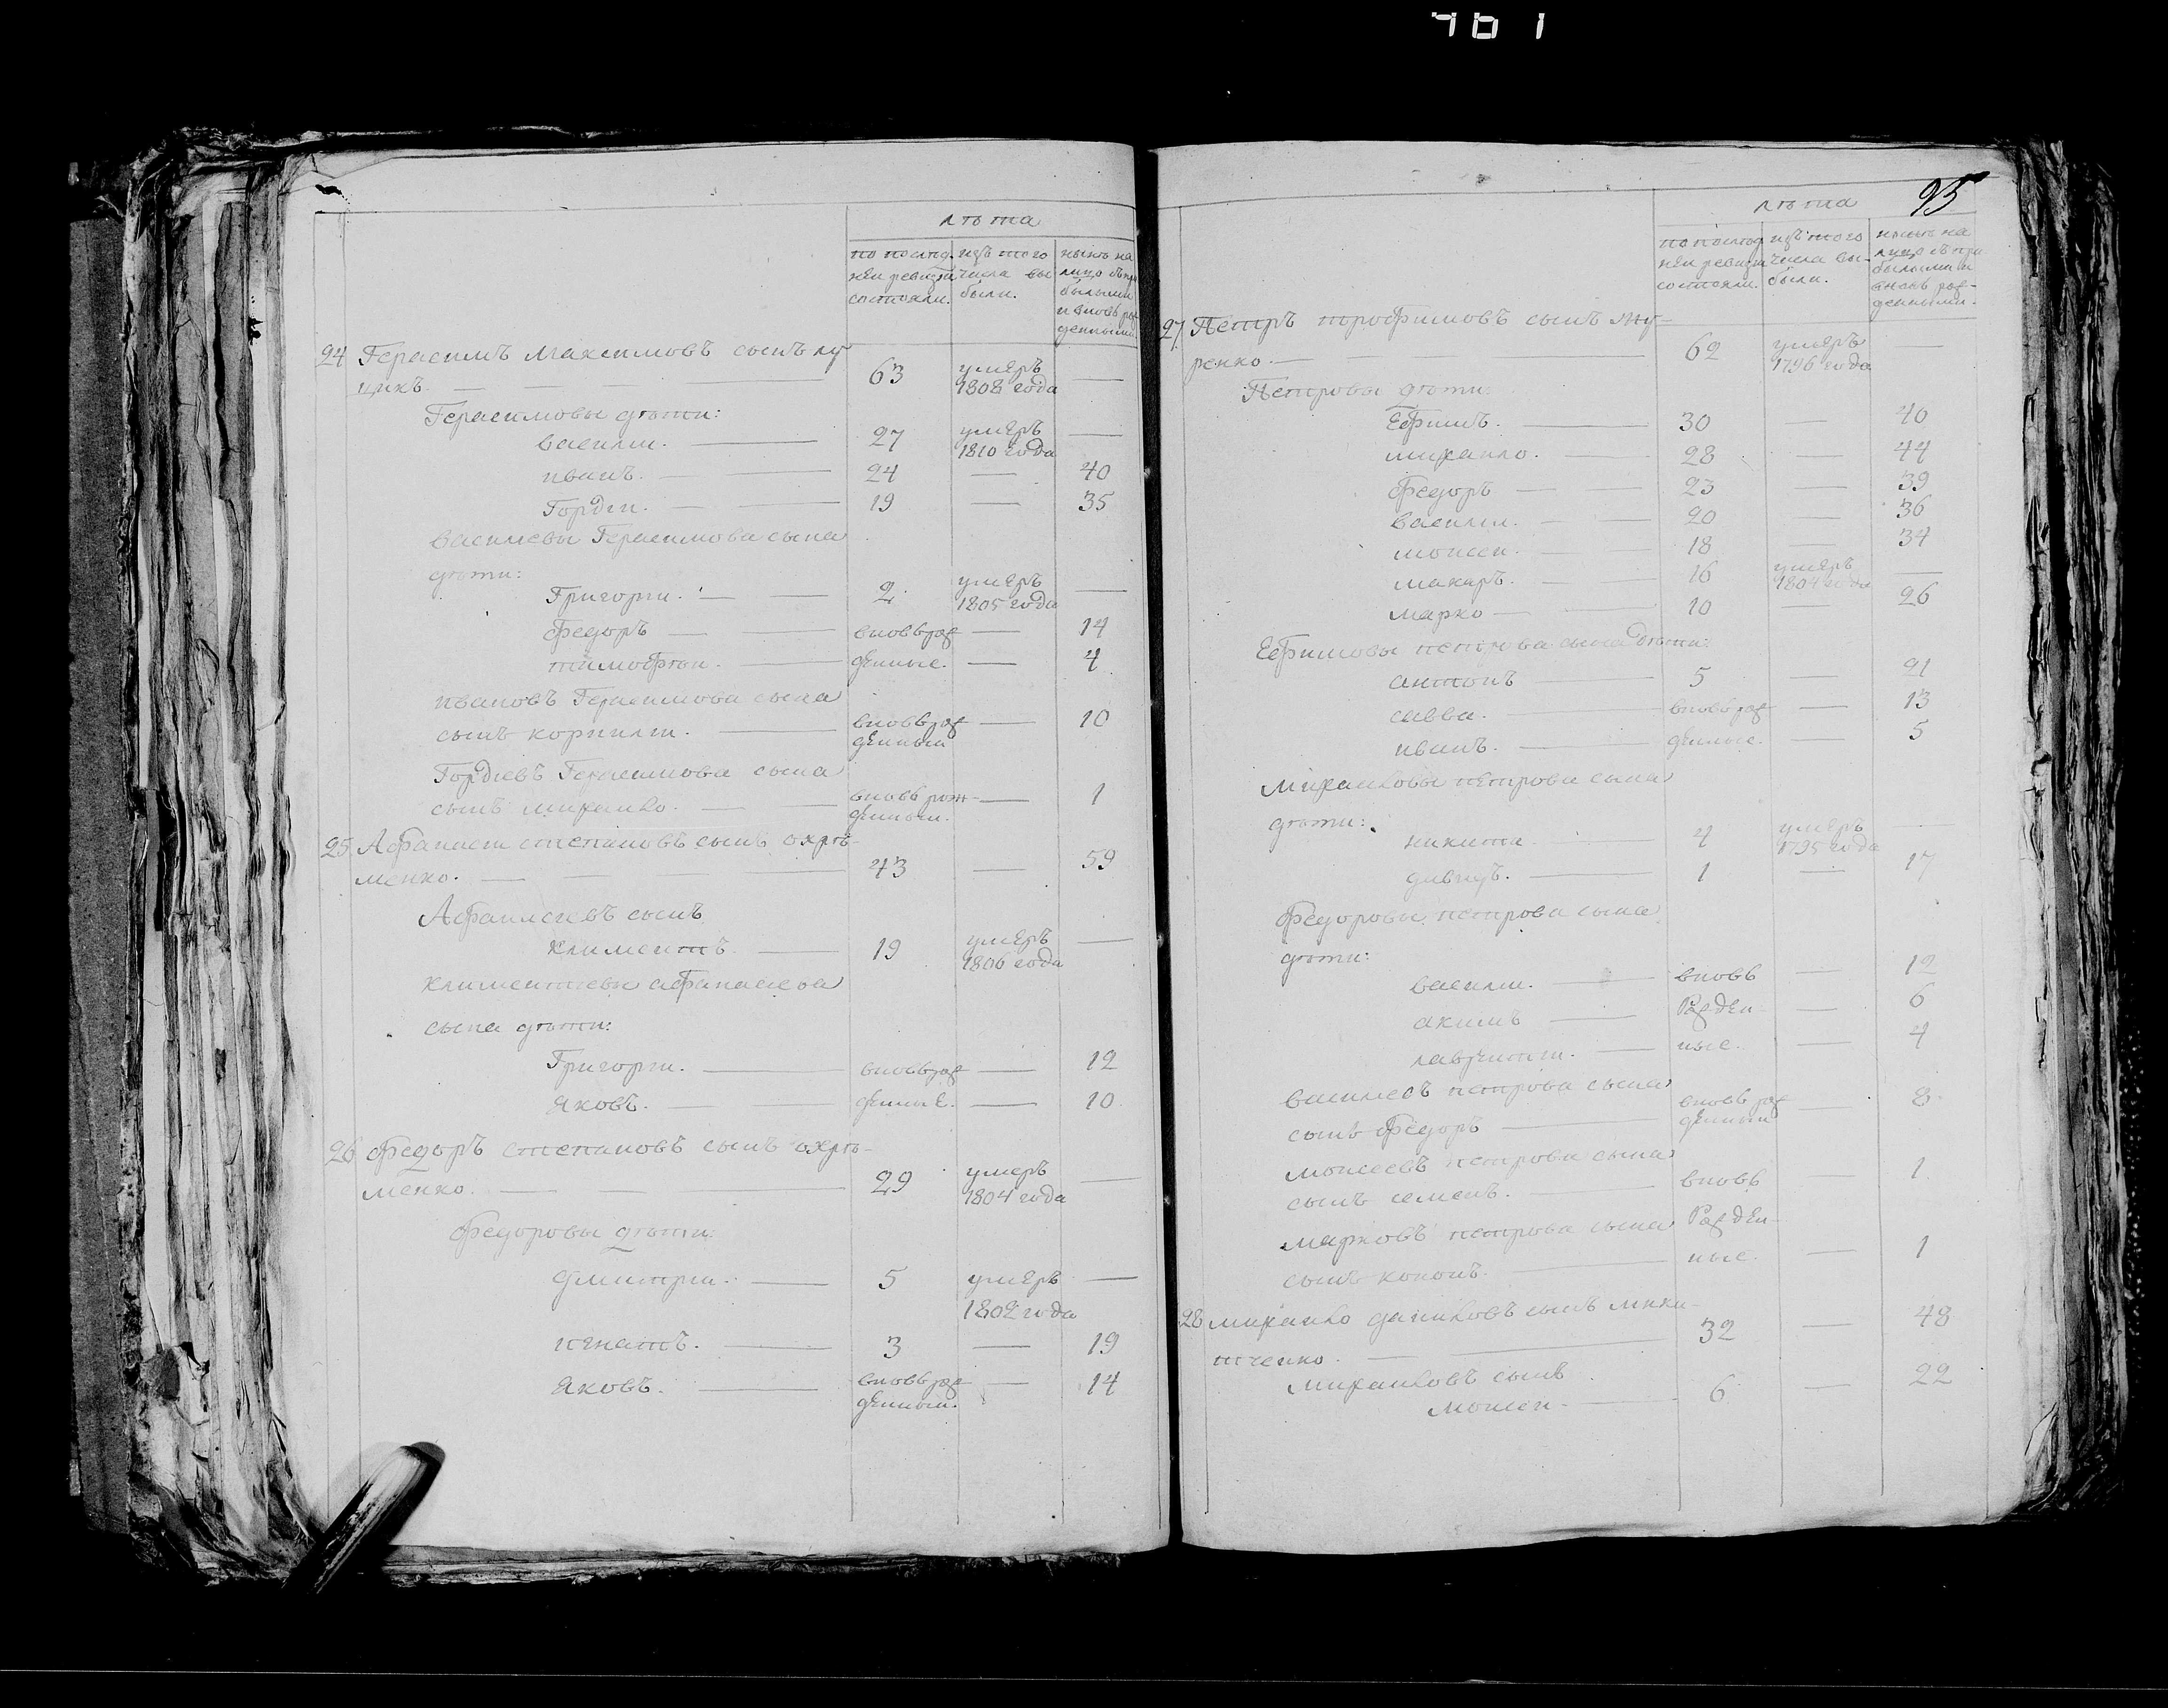 лѣта
по послѣд- изъ того нынѣ на
ней ревизіи числа вы- лицо съ при
состояли. были. былыми
и вновь рож
денными
24 Герасимъ Максимовъ сынъ лу
цикъ. 63 умеръ 1808 года —
Герасимовы дѣти:
василии. 27 умеръ 1810 года —
иванъ. 24 — 40
Гордеи. 19 — 35
василиевы Герасимова сына
дѣти:
Григории. 2 умеръ 1805 года —
федоръ вновь рож — 14
тимофеи. денные. — 4
ивановъ Герасимова сына
сынъ корнилии. вновь рож денныи — 10
Гордіевъ Герасимова сына
сынъ михаило. вновь рож- денныи. — 1
25 Афанасеи степановъ сынъ охрѣ-
менко. 43 — 59
Афанасиевъ сынъ
климентъ 19 умеръ 1806 года —
климентиевы афанасиева
сына дѣти:
Григории. вновь рож — 12
яковъ. денные. — 10
26 федоръ степановъ сынъ охрѣ-
менко. 29 умеръ 1804 года —
федоровы дѣти:
дмитрии. 5 умеръ 1802 года —
игнатъ. 3 — 19
яковъ. вновь рож денныи. — 14
95
лѣта
по послѣд- изъ того нынѣ на
ней ревизіи числа вы- лицо съ при
состояли. были. былыми и
вновь рож-
денными.
27 Петръ трофимовъ сынъ жу-
ренко. 62 умеръ 1796 года —
Петровы дѣти:
Ефимъ. 30 — 40
михаило. 28 — 44
федоръ 23 — 39
василии. 20 — 36
моисеи. 18 — 34
макаръ. 16 умеръ 1804 года —
марко 10 — 26
Ефимовы петрова сына дѣти:
антонъ 5 — 21
савва. вновь рож — 13
иванъ. денные. — 5
михаиловы петрова сына
дѣти:
никита 4 умеръ 1795 года —
давидъ. 1 — 17
федоровы петрова сына
дѣти:
василии. вновь — 12
акимъ Рожден- — 6
лаврентии. ные. — 4
василиевъ петрова сына
сынъ федоръ вновь рож денныи — 8
моисеевъ петрова сына
сынъ семенъ. вновь 1
марковъ петрова сына Рожден-
сынъ кононъ. ные. — 1
28 михаило даниловъ сынъ мики-
тченко. 32 — 48
михаиловъ сынъ
моисеи. 6 — 22